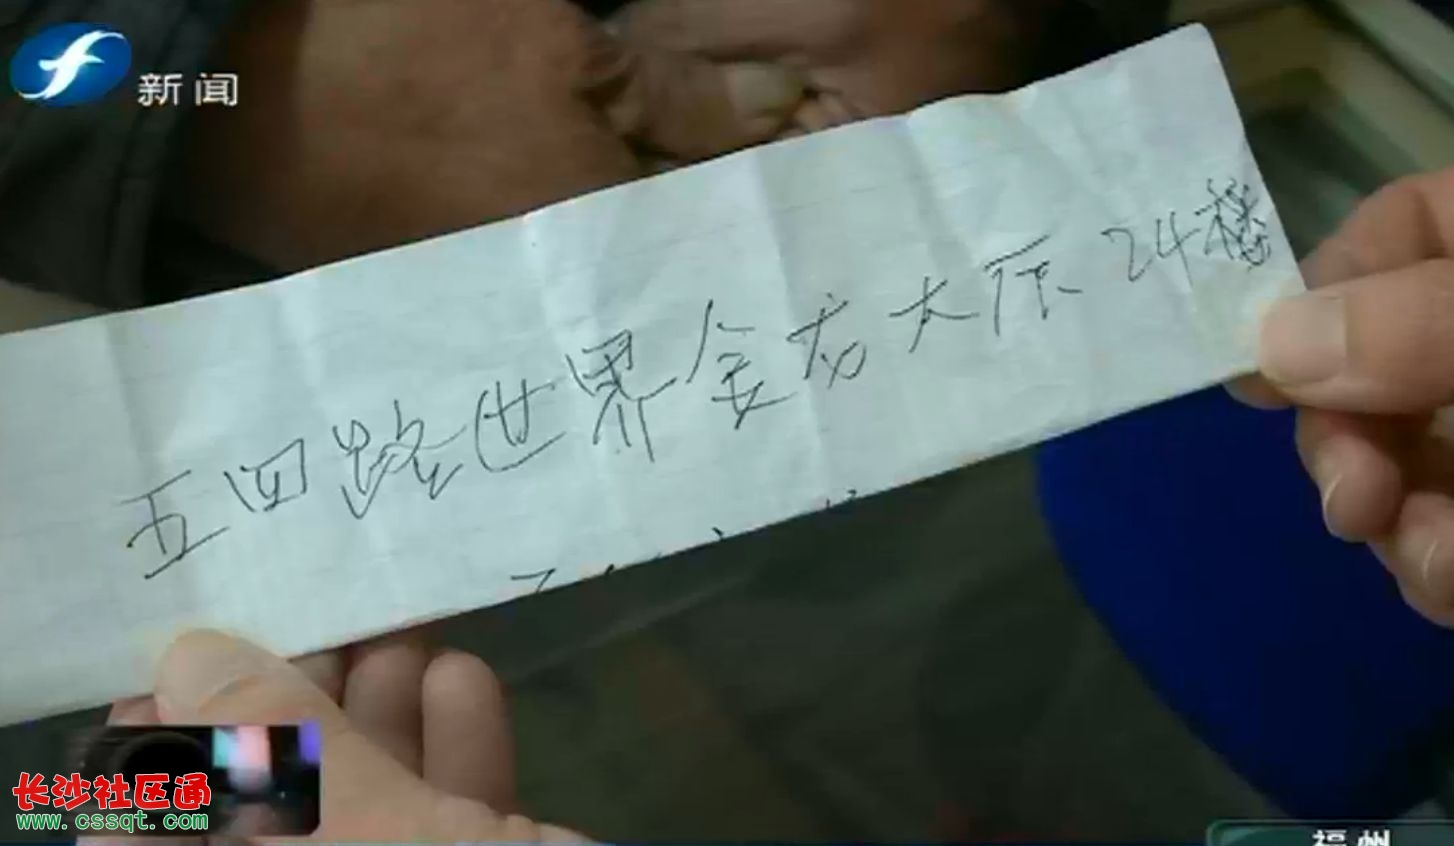 新闻
五四路世界金龙大厦24楼
长沙社区通
www.cssqt.com
福州